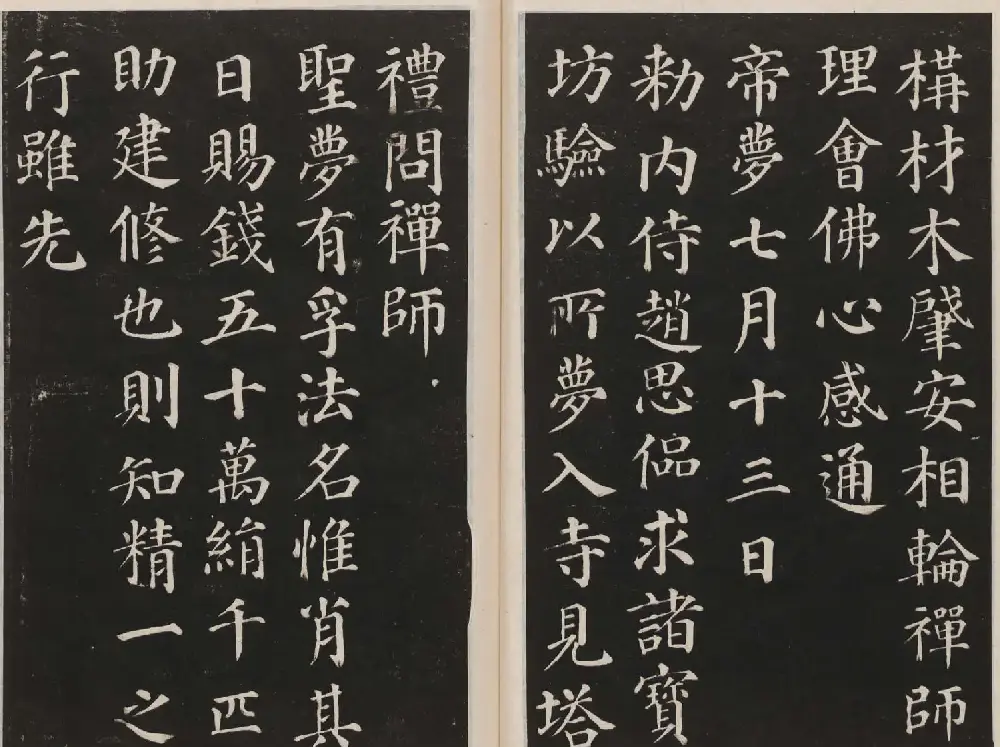 構材木肇安相輪禪師
理會佛心感通
帝夢七月十三日
勅内侍趙思偘求諸寶
坊驗以所夢入寺見塔
禮問禪師
聖夢有孚法名惟肖其
日賜錢五十萬絹千匹
助建修也則知精一之
行雖先